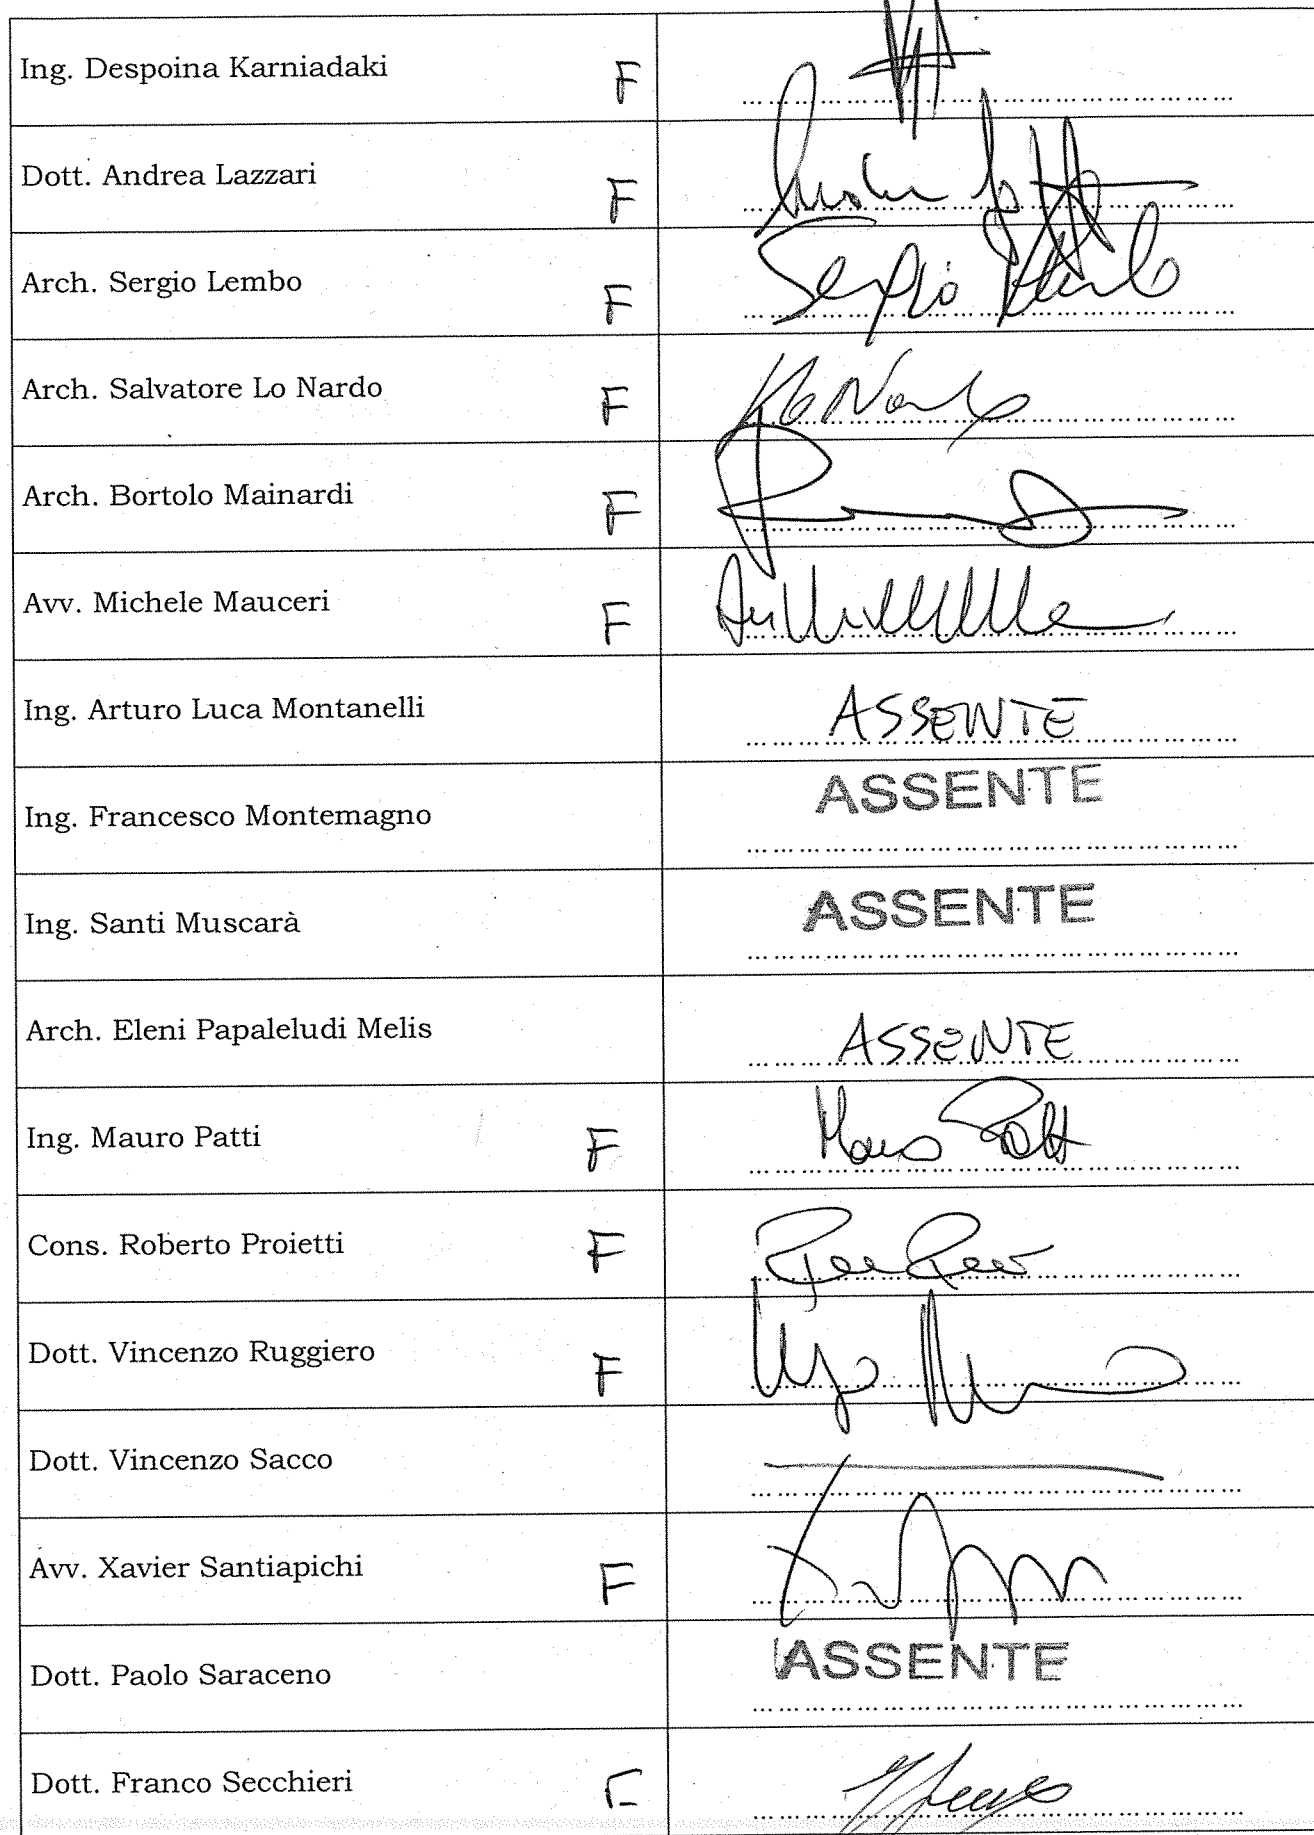 Ing. Despoina Karniadaki F
Dott. Andrea Lazzari F
Arch. Sergio Lembo F
Sergio
Arch. Salvatore Lo Nardo F
Arch. Bortolo Mainardi F
Avv. Michele Mauceri F
Ing. Arturo Luca Montanelli ASSENTE
Ing. Francesco Montemagno ASSENTE
Ing. Santi Muscarà ASSENTE
Arch. Eleni Papaleludi Melis ASSENTE
Ing. Mauro Patti F
Cons. Roberto Proietti F
Dott. Vincenzo Ruggiero F
Dott. Vincenzo Sacco
Avv. Xavier Santiapichi F
Dott. Paolo Saraceno ASSENTE
Dott. Franco Secchieri F